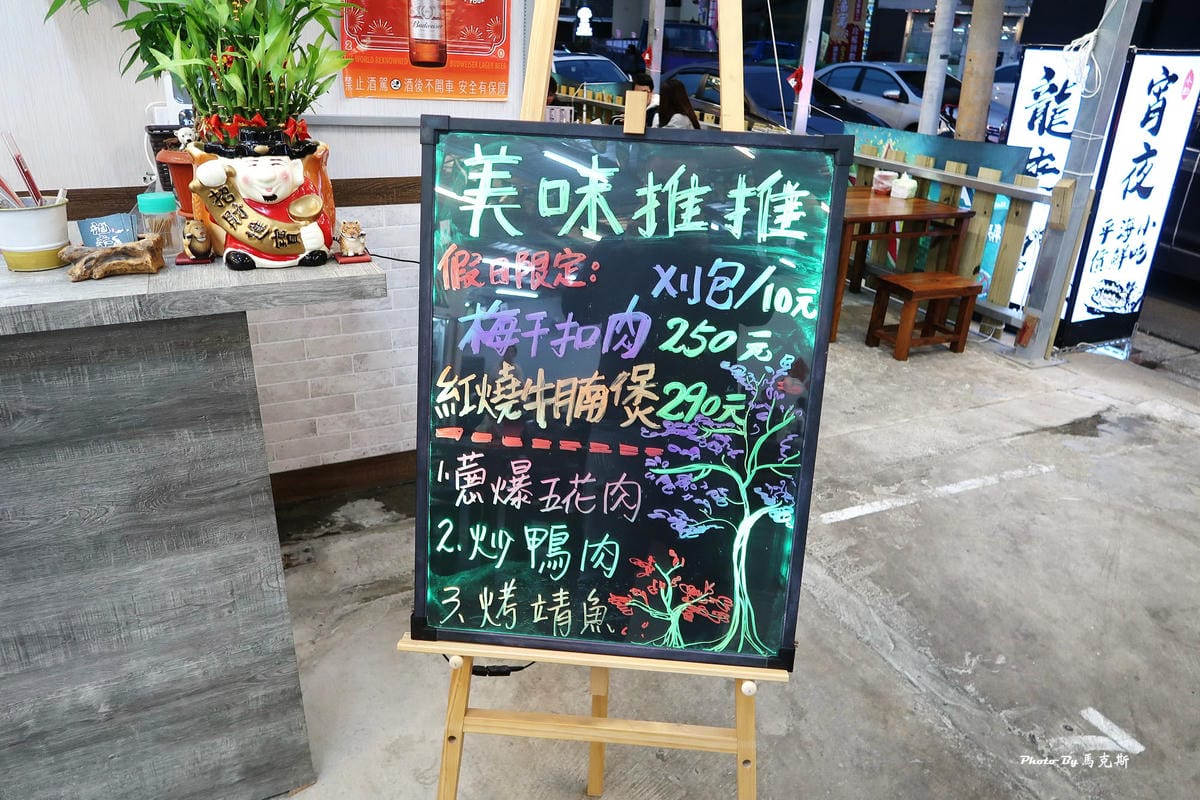 美味推推
假日限定:
刈包/10元
梅干扣肉 250元
紅燒牛腩煲 290元
1.蔥爆五花肉
2.炒鴨肉
3.烤靖魚
Budweiser
WORLD RENOWNED
BUDWEISER LAGER BEER
禁止酒駕 酒後不開車 安全有保障
招財進寶
龍
宵夜
平價海鮮小吃
Photo By 馬克斯